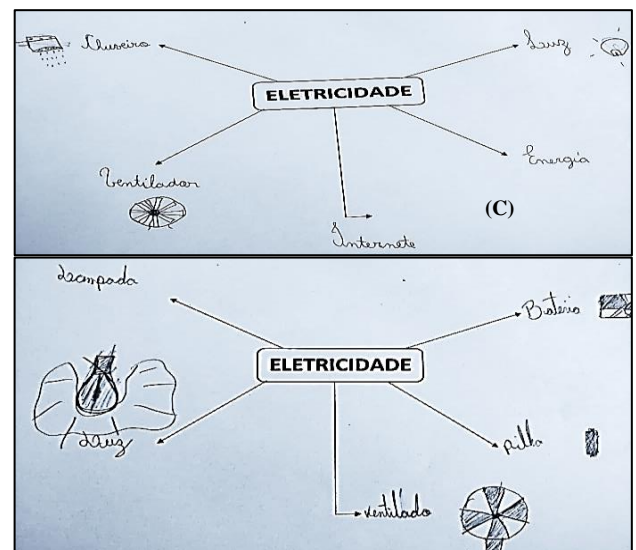 Chuveiro
Luz
ELETRICIDADE
Energia
Ventilador
(C)
Internete
Lampada
Bateria
ELETRICIDADE
Luz
pilha
ventilado